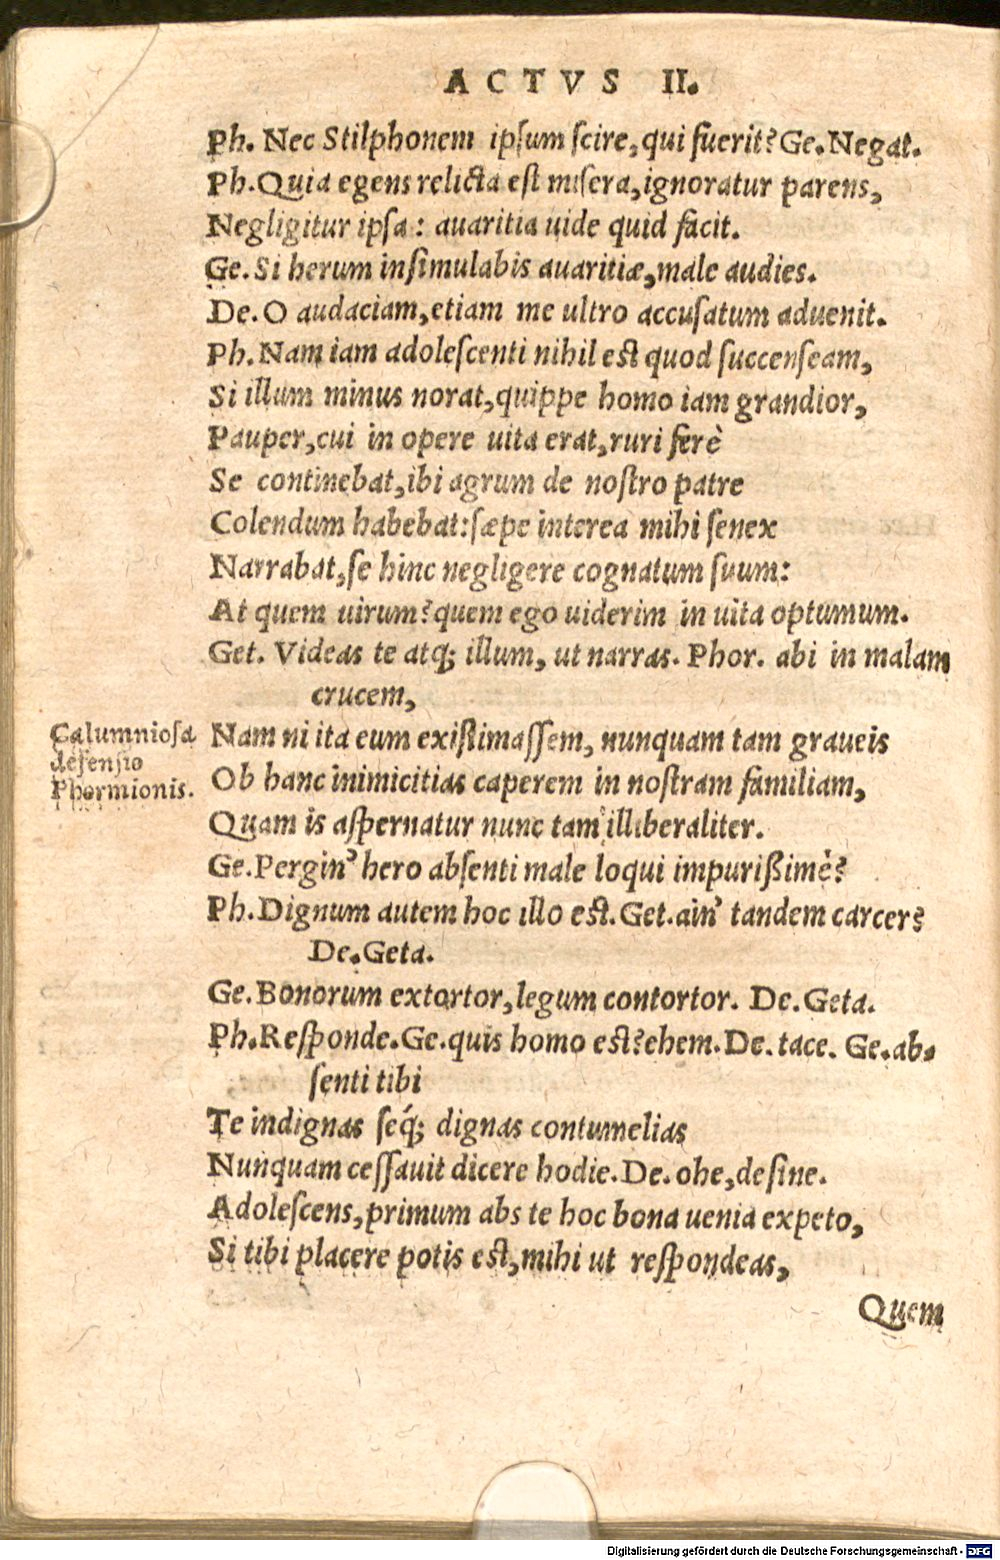 ACTVS II.
Ph. Nec Stilphonem ipſum ſcire, qui fuerit? Ge. Negat.
Ph. Quia egens relicta eſt miſera, ignoratur parens,
Negligitur ipſa: auaritia uide quid facit.
Ge. Si herum inſimulabis auaritiæ, male audies.
De. O audaciam, etiam me ultro accuſatum aduenit.
Ph. Nam iam adoleſcenti nihil eſt quod ſuccenſeam,
Si illum minus norat, quippe homo iam grandior,
Pauper, cui in opere uita erat, ruri ferè
Se continebat, ibi agrum de noſtro patre
Colendum habebat: ſæpe interea mihi ſenex
Narrabat, ſe hinc negligere cognatum ſuum:
At quem uirum? quem ego uiderim in uita optumum.
Get. Videas te atq; illum, ut narras. Phor. abi in malam
crucem,
Calumnioſa
defenſio
Phormionis.
Nam ni ita eum exiſtimaſſem, nunquam tam graueis
Ob hanc inimicitias caperem in noſtram familiam,
Quam is aſpernatur nunc tam illiberaliter.
Ge. Pergin' hero abſenti male loqui impurißimè?
Ph. Dignum autem hoc illo eſt. Get. ain' tandem carcer?
De. Geta.
Ge. Bonorum extortor, legum contortor. De. Geta.
Ph. Reſponde. Ge. quis homo eſt? ehem. De. tace. Ge. ab-
ſenti tibi
Te indignas ſeq́; dignas contumelias
Nunquam ceſſauit dicere hodie. De. ohe, deſine.
Adoleſcens, primum abs te hoc bona uenia expeto,
Si tibi placere potis eſt, mihi ut reſpondeas,
Quem
Digitalisierung gefördert durch die Deutsche Forschungsgemeinschaft - DFG